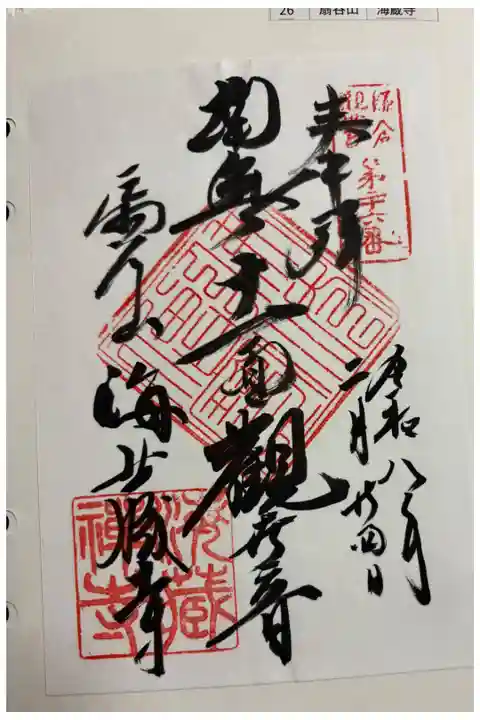 26 扇谷山 海蔵寺
鎌倉
観世音
第二十六番
奉拝
令和八年
二月廿四日
南無十一面観世音
扇谷山 海蔵寺
海蔵
禅寺